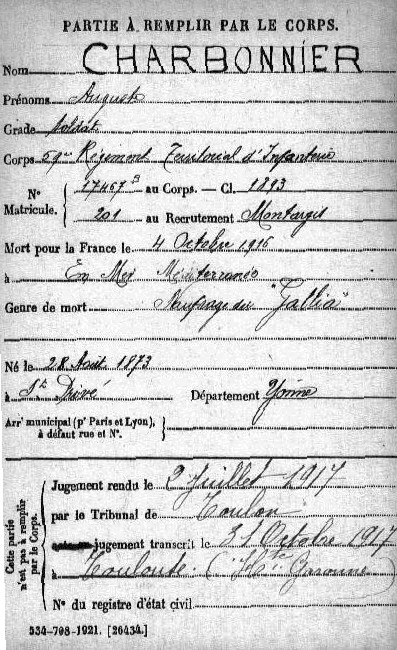 PARTIE À REMPLIR PAR LE CORPS.
Nom CHARBONNIER
Prénoms August
Grade soldat
Corps 59me Régiment Territorial d'Infanterie
N° Matricule. { 17467 B au Corps. — Cl. 1893
201 au Recrutement Montargis
Mort pour la France le 4 Octobre 1916
à En Mer Méditerranée
Genre de mort Naufrage du "Gallia"
Né le 28 Août 1873
à St Privé Département Yonne
Arrt municipal (pr Paris et Lyon), à défaut rue et N°. }
Cette partie n'est pas à remplir par le Corps.
Jugement rendu le 2 Juillet 1917
par le Tribunal de Toulon
jugement transcrit le 31 Octobre 1917
à Toulouse. (Hte Garonne)
N° du registre d'état civil
534-708-1921. [26434.]